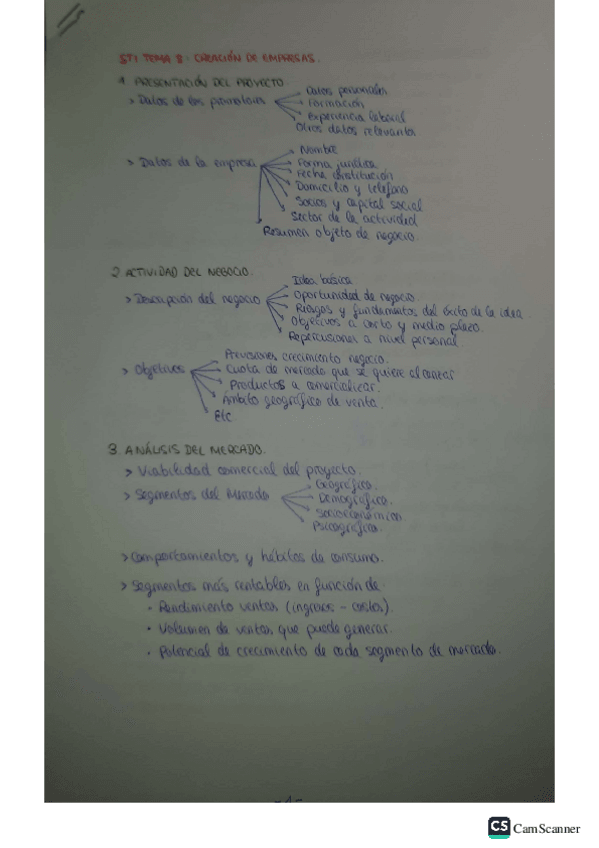 STI TEMA 8 - CREACIÓN DE EMPRESAS.
1. PRESENTACIÓN DEL PROYECTO.
> Datos de los promotores
Datos personales
Formación
Experiencia laboral
Otros datos relevantes
> Datos de la empresa
Nombre
Forma jurídica
Fecha constitución
Domicilio y teléfono
Socios y capital social
Sector de la actividad
Resumen objeto de negocio.
2. ACTIVIDAD DEL NEGOCIO.
> Descripción del negocio
Idea básica
Oportunidad de negocio
Riesgos y fundamentos del éxito de la idea.
Objetivos a corto y medio plazo.
Repercusiones a nivel personal
> Objetivos
Previsiones crecimiento negocio.
Cuota de mercado que se quiere alcanzar
Productos a comercializar.
Ámbito geográfico de venta.
Etc
3. ANÁLISIS DEL MERCADO.
> Viabilidad comercial del proyecto.
> Segmentos del Mercado
Geográfico.
Demográfico.
Socioeconómico.
Psicográfico.
> Comportamientos y hábitos de consumo.
> Segmentos más rentables en función de:
• Rendimiento ventas (ingresos - costes).
• Volumen de ventas que puede generar.
• Potencial de crecimiento de cada segmento de mercado.
-1-
CS CamScanner